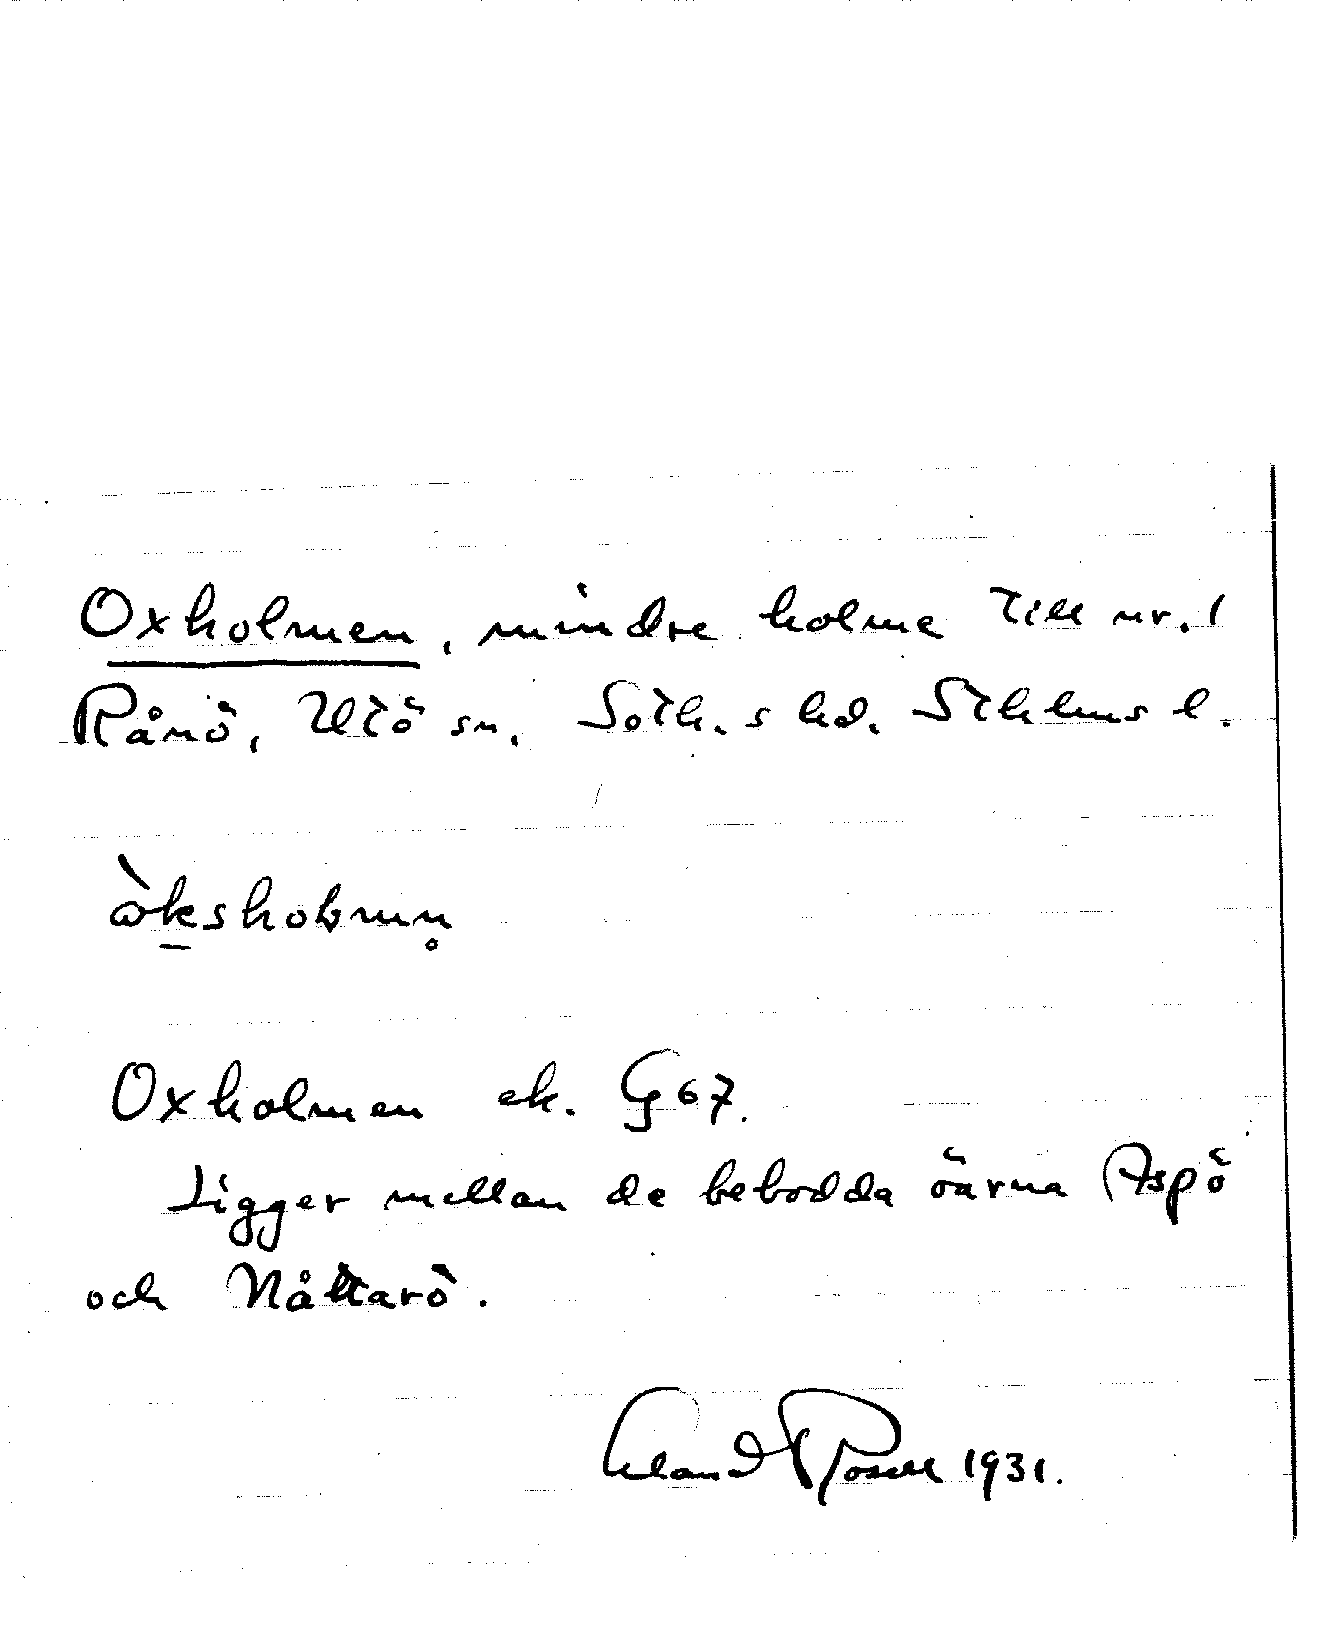 Oxholmen, mindre holme till nr. 1
Rånö, Utö sn. Soth.s hd. Sthlms l.
òksholmn̥
Oxholmen ek. G67.
Ligger mellan de bebodda öarna Aspö
och Nåttarö.
Erland Rosell 1931.